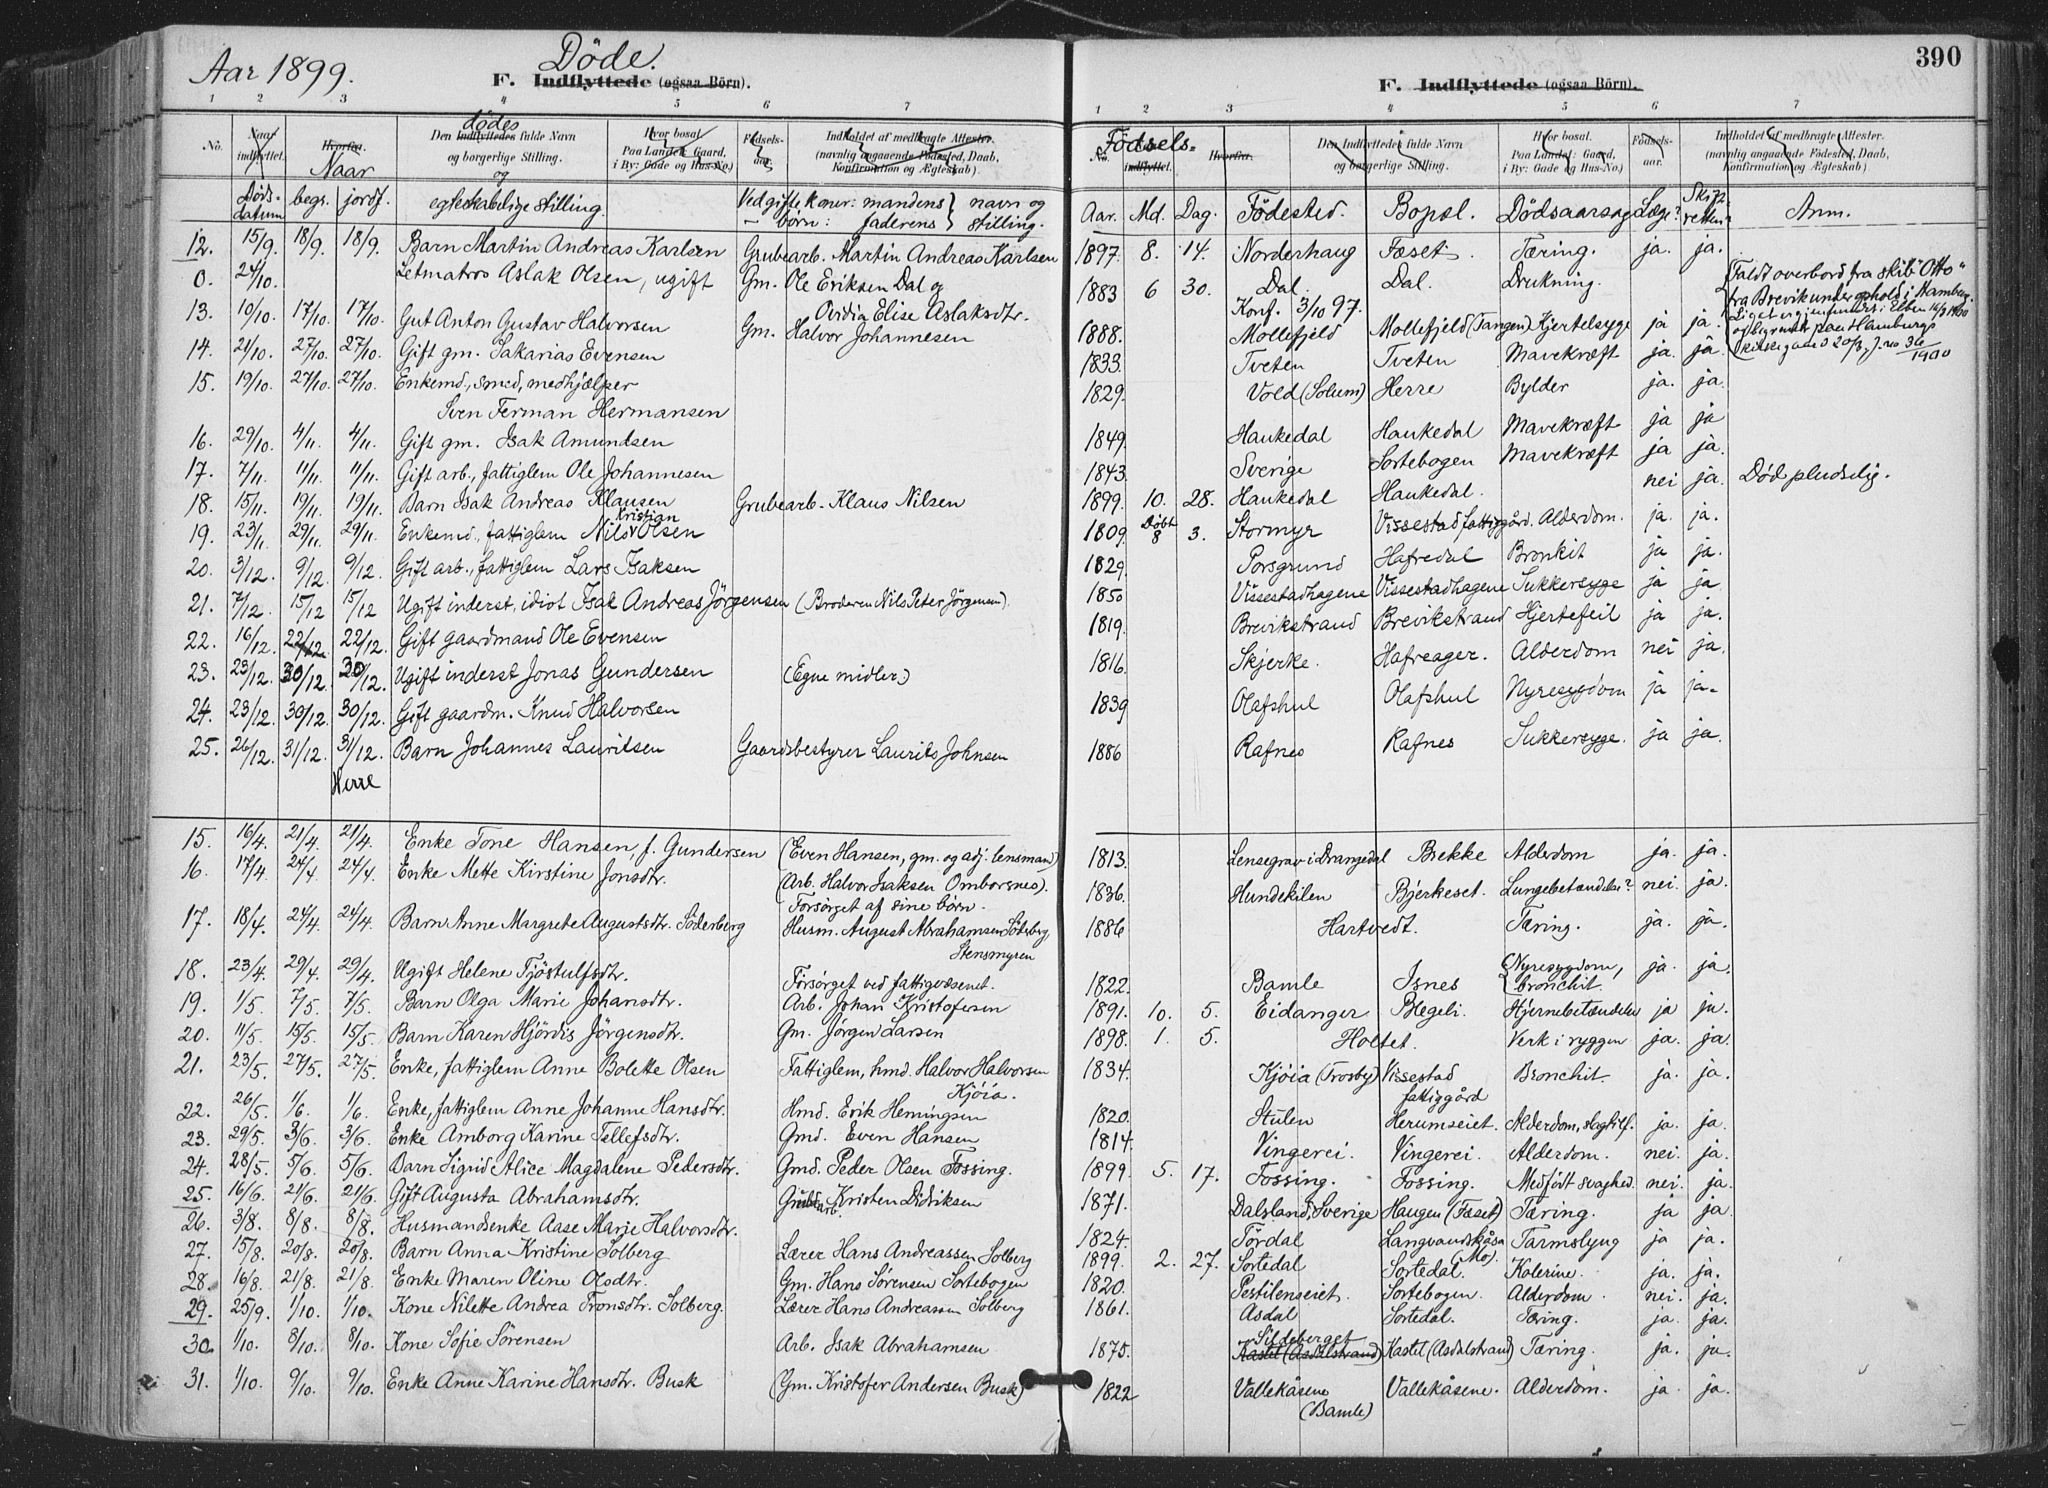 390
Aar 1899.
Döde.
F. Indflyttede (ogsaa Börn).
F. Indflyttede (ogsaa Börn).
1 2 3 4 5 6 7
1 2 3 4 5 6 7
No. Naar indflyttet. Hvorfra. Naar Den Indflyttedes dødes fulde Navn og borgerlige Stilling. Hvor bosat. Paa Landet: Gaard, i By: Gade og Hus-No.) Fødsels-aar. Indholdet af medbragte Attester. (navnlig angaaende Fødested, Daab, Konfirmation og Ægteskab)
No. Fødsels- indflyttet. Hvorfra. Den Indflyttedes fulde Navn og borgerlige Stilling. Hvor bosat. Paa Landet: Gaard, i By: Gade og Hus-No.) Fødsels-aar. Indholdet af medbragte Attester. (navnlig angaaende Fødested, Daab, Konfirmation og Ægteskab)
Døds-datum begr. jordf. og egteskabelige stilling. Ved gifte koner: mandens navn og
— börn: faderens stilling.
Aar. Md. Dag. Födested. Bopæl. Dödsaarsag Læge? Skifteretten? Anm.
12. 15/9. 18/9. 18/9. Barn Martin Andreas Karlsen Grubearb. Martin Andreas Karlsen 1897. 8. 14. Norderhaug Fæset. Tæring. ja. ja.
0. 24/10. Letmatros Aslak Olsen, ugift Gm. Ole Eriksen Dal og 1883 6 30. Dal. Dal. Drukning.
Ovidia Elise Aslaksdtr. Konf. 3/10 97.
Faldt overbord fra skib "Otto"
fra Brevik under ophold i Hamburg.
Liget er gjenfundet i Elben 16/3 1900
og begravet paa Hamburgs
kirkegaard 20/3, J. no 36/1900
13. 10/10. 17/10. 17/10. Gut Anton Gustav Halvorsen Gm. Halvor Johannesen 1888. Mollefjeld Mollefjeld (Tangen) Kjertelsyge ja ja.
14. 21/10. 27/10. 27/10. Gift gm. Sakarias Evensen 1833. Tveten Tveten Mavekræft ja. ja
15. 19/10. 27/10. 27/10. Enkemd., smed, medhjælper 1829. Vold (Solum) Herre Bylder ja. ja.
Sven Ferman Hermansen
16. 29/10. 4/11. 4/11. Gift gm. Isak Amundsen 1849. Haukedal Haukedal Mavekræft ja ja
17. 7/11. 11/11. 11/11. Gift arb., fattiglem Ole Johannesen 1843. Sverige Sortebogen Mavekræft ja ja.
18. 15/11. 19/11. 19/11. Barn Isak Andreas Klausen Grubearb. Klaus Nilsen 1899. 10. 28. Haukedal Haukedal. nei ja. Död pludselig.
19. 23/11. 29/11. 29/11. Enkemd., fattiglem Nils Kristian Olsen 1809. Döbt 8 3. Stormyr Vissestad fattiggård. Alderdom. ja. ja.
20. 3/12. 9/12. 9/12. Gift arb., fattiglem Lars Isaksen 1829. Porsgrund Hafredal Bronkit ja ja.
21. 7/12. 15/12 15/12 Ugift inderst, idiot Isak Andreas Jörgensen (Broderen Nils Peter Jörgensen). 1850 Vissestadhagene Vissestadhagene Sukkersyge ja ja
22. 16/12. 22/12. 22/12. Gift gaardmand Ole Evensen 1819. Brevikstrand Brevikstrand Hjertefeil ja ja.
23. 23/12. 30/12. 30/12. Ugift inderst Jonas Gundersen (Egne midler.) 1816. Skjerke. Hafreager. Alderdom nei ja.
24. 23/12. 30/12. 30/12. Gift gaardm. Knud Halvorsen 1839 Olafshul Olafshul Nyresygdom ja ja.
25. 26/12. 31/12. 31/12. Barn Johannes Lauritsen Gaardsbestyrer Laurits Johnsen 1886 Rafnes Rafnes Sukkersyge. ja ja.
Herre
15. 16/4. 21/4. 21/4. Enke Tone Hansen, f. Gundersen (Even Hansen, gm. og adj. lensmand) 1813. Lensegrav i Drangedal Brekke Alderdom ja. ja.
16. 17/4. 24/4. 24/4. Enke Mette Kirstine Jonsdtr. (Arb. Halvor Isaksen Omborsnes). 1836. Hundekilen Bjerkeset. Lungebetændelse? nei. ja.
Forsörget af sine börn.
17. 18/4. 24/4. 24/4. Barn Anne Margrete Augustsdtr. Söderberg Husm. August Abrahamsen Söteberg, 1886 Hartvedt. Tæring. ja. ja.
Stensmyren
18. 23/4. 29/4. 29/4. Ugift Helene Tjöstulfsdtr. Försörget ved fattigvæsenet. 1822. Bamle Isnes Nyresygdom, bronchit. ja. ja.
19. 1/5. 7/5. 7/5. Barn Olga Marie Johansdtr. Arb. Johan Kristofersen 1891. 10. 5. Eidanger Blegeli. Hjernebetændelse ja ja.
20. 11/5. 15/5. 15/5. Barn Karen Hjördis Jörgensdtr. Gm. Jörgen Larsen 1898. 1. 5. Holtet. Verk i ryggen ja. ja.
21. 23/5. 27/5. 27/5. Enke, fattiglem Anne Bolette Olsen Fattiglem, hmd. Halvor Halvorsen 1834. Kjöia (Trosby) Vissestad fattiggård Bronchit. ja. ja.
Kjöia.
22. 26/5. 1/6. 1/6. Enke, fattiglem Anne Johanne Hansdtr. Hmd. Erik Hemingsen 1820. Stulen Herumseiet. Alderdom, slagtilf. ja. ja.
23. 29/5. 3/6. 3/6. Enke Amborg Karine Tellefsdtr. Gmd. Even Hansen 1814. Vingerei. Vingerei. Alderdom. nei. ja.
24. 28/5. 5/6. 5/6. Barn Sigrid Alice Magdalene Pedersdtr. Gmd. Peder Olsen Fossing. 1899. 5. 17. Fossing. Fossing. Medfødt svaghed. nei. ja.
25. 16/6. 21/6. 21/6. Gift Augusta Abrahamsdtr. Grubearb. Kristen Didriksen 1871. Dalsland, Sverige Haugen (Fæset) Tæring. ja ja.
26. 3/8. 8/8. 8/8. Husmandsenke Aase Marie Halvorsdtr. 1824. Tördal Langvandskåsa (Mo). Tarmslyng ja ja.
27. 15/8. 20/8. 20/8. Barn Anna Kristine Solberg Lærer Hans Andreassen Solberg 1899. 2. 27. Sortedal Sortedal. Kolerine. ja. ja.
28. 16/8. 21/8. 21/8. Enke Maren Oline Olsdtr. Gm. Hans Sørensen Sortebogen 1820. Pestilenseiet. Sortebogen. Alderdom. nei. ja.
29. 25/9. 1/10. 1/10. Kone Nilette Andrea Tronsdtr. Solberg. Lærer Hans Andreassen Solberg 1861. Asdal Sortedal. Tæring. ja. ja.
30. 1/10. 8/10. 8/10. Kone Sofie Sörensen Arb. Isak Abrahamsen 1875. Sildeberget Kastet (Asdalstrand) Kastet (Asdalstrand) Tæring. ja. ja.
31. 1/10. 9/10. 9/10. Enke Anne Karine Hansdtr. Busk (Gm. Kristofer Andersen Busk) 1822 Vallekåsene (Bamle) Vallekåsene. Alderdom. ja. ja.